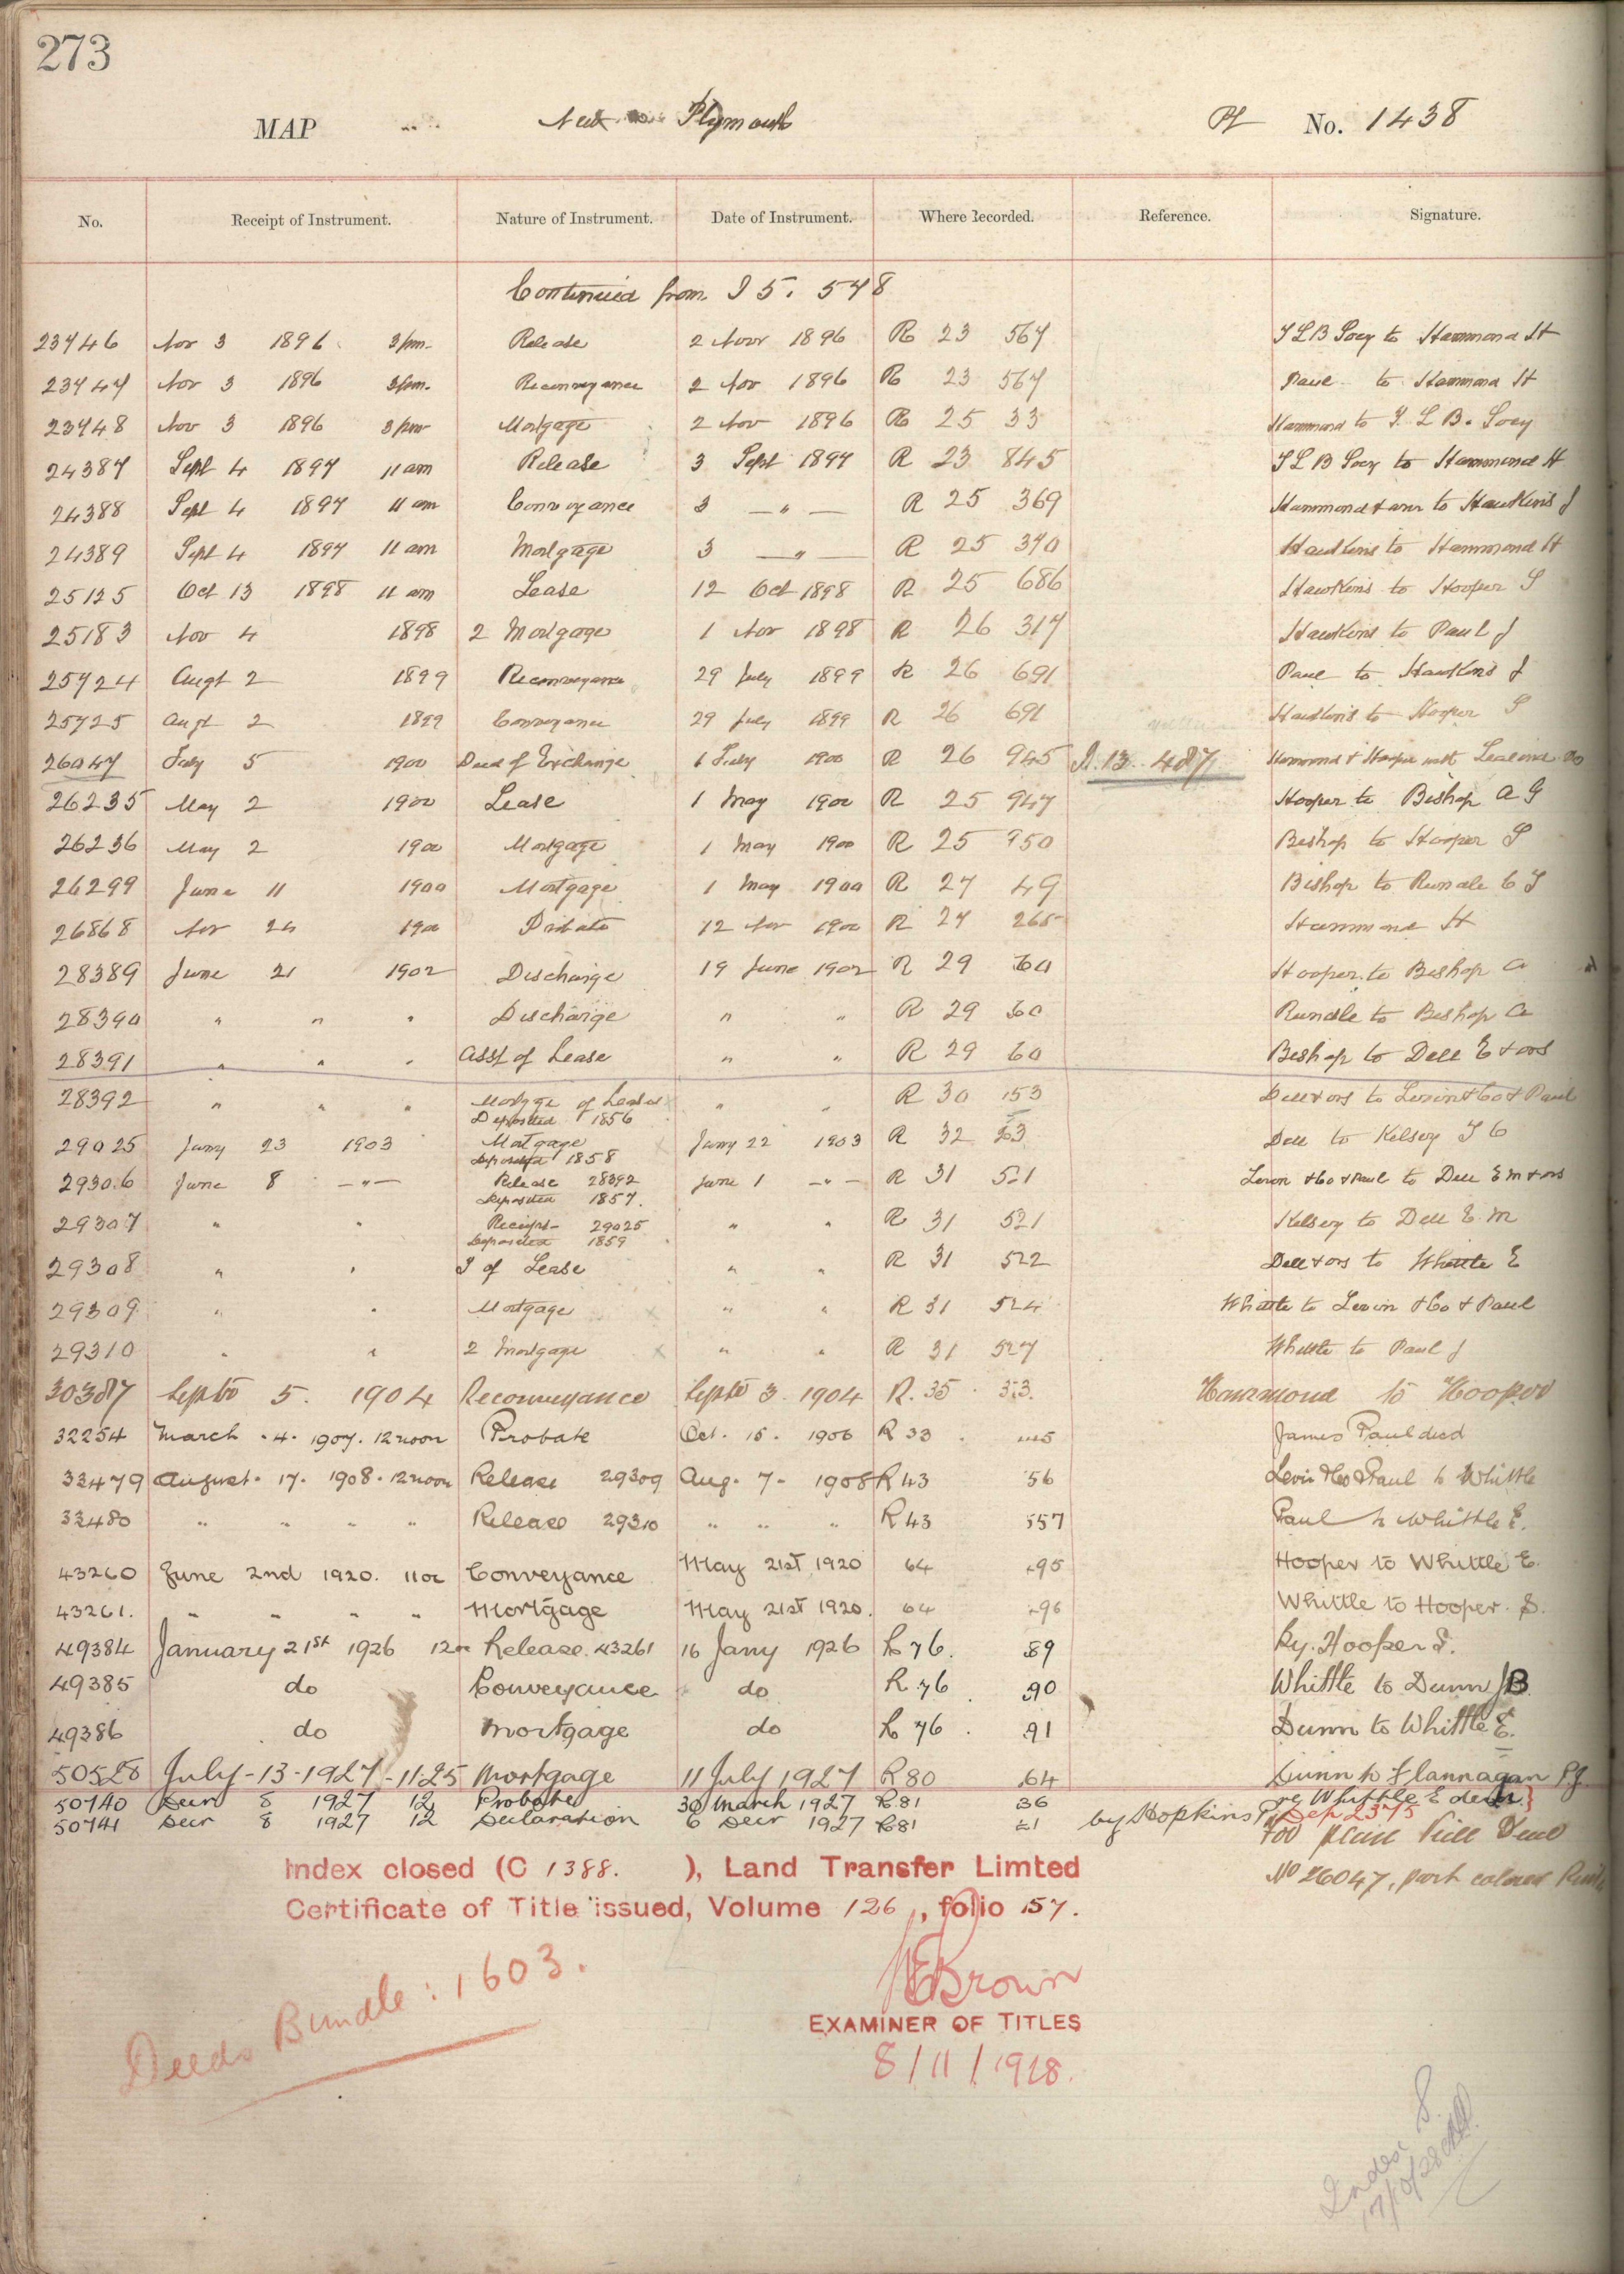 273
MAP New Plymouth Pt No. 1438
No. Receipt of Instrument. Nature of Instrument. Date of Instrument. Where Recorded. Reference. Signature.
Continued from I 5. 548
23746 Nov 3 1896 3 pm. Release 2 Novr 1896 R 23 567 to Hammond H
23747 Nov 3 1896 3 pm. Reconveyance 2 Nov 1896 R 23 567 Paul to Hammond H
23748 Nov 3 1896 3 pm Mortgage 2 Nov 1896 R 25 33 Hammond to
24387 Sept 4 1897 11 am Release 3 Sept 1897 R 23 845 to Hammond H
24388 Sept 4 1897 11 am Conveyance 3 — " — R 25 369 Hammond & anr to Hawkins J
24389 Sept 4 1897 11 am Mortgage 3 — " — R 25 370 Hawkins to Hammond H
25125 Oct 13 1898 11 am Lease 12 Oct 1898 R 25 686 Hawkins to Hooper S
25183 Nov 4 1898 2 Mortgage 1 Nov 1898 R 26 317 Hawkins to Paul J
25724 Augt 2 1899 Reconveyance 29 July 1899 R 26 691 Paul to Hawkins J
25725 Augt 2 1899 Conveyance 29 July 1899 R 26 691 Hawkins to Hooper S
26047 July 5 1900 Deed of Exchange 1900 R 26 945 I. 13. 487 Hammond & Hooper with
26235 May 2 1900 Lease 1 May 1900 R 25 947 Hooper to Bishop A G
26236 May 2 1900 Mortgage 1 May 1900 R 25 950 Bishop to Hooper S
26299 June 11 1900 Mortgage 1 May 1900 R 27 49 Bishop to Rundle C J
26868 Nov 24 1900 Probate 12 Nov 1900 R 27 265 Hammond H
28389 June 21 1902 Discharge 19 June 1902 R 29 60 Hooper to Bishop A
28390 " " " Discharge " " R 29 60 Rundle to Bishop A
28391 " " " Asst of Lease " " R 29 60 Bishop to Dell E & ors
28392 " " " Mortgage of Lease " " R 30 153 Dell & ors to Levin & Co & Paul
Deposited 1856
29025 Jany 23 1903 Mortgage Jany 22 1903 R 32 23 Dell to Kelsey J C
Deposited 1858
29306 June 8 — " — Release 28392 June 1 — " — R 31 521 Levin & Co & Paul to Dell E M & ors
Deposited 1857.
29307 " " Receipt 29025 " " R 31 521 Kelsey to Dell E. M
Deposited 1859
29308 " " T of Lease " " R 31 522 Dell & ors to Whittle E
29309 " " Mortgage " " R 31 524 Whittle to Levin & Co & Paul
29310 " " 2 Mortgage " " R 31 527 Whittle to Paul J
30387 Septbr 5. 1904 Reconveyance Septbr 3. 1904 R. 35 Hammond to Hooper
32254 March 4. 1907. 12 noon Probate Oct. 15. 1906 R 33 James Paul decd
33479 August 17. 1908. 12 noon Release 29309 Aug. 7. 1908 R 43 56 Levin & Co & Paul to Whittle
33480 " " " " Release 29310 " " " R 43 557 Paul to Whittle E.
43260 June 2nd 1920. 11 oc Conveyance May 21st 1920 64 295 Hooper to Whittle E.
43261. " " " " Mortgage May 21st 1920. 64 296 Whittle to Hooper. S.
49384 January 21st 1926 12 Release 43261 16 Jany 1926 R 76. 89 By. Hooper S.
49385 do Conveyance do R 76. 90 Whittle to Dunn J B
49386 do Mortgage do R 76. 91 Dunn to Whittle E.
50528 July - 13 - 1927 - 11.25 Mortgage 11 July 1927 R 80 64 Dunn to Flannagan P J
50740 Decr 8 1927 12 Probate 30 March 1927 R 81 36 re Whittle E decd }
50741 Decr 8 1927 12 Declaration 6 Decr 1927 R 81 by Hopkins Dep 2375
For plan see Deed
No 26047, part colored
Index closed (C 1388. ), Land Transfer Limted
Certificate of Title issued, Volume 126, folio 57.
Deeds Bundle: 1603.
Brown
EXAMINER OF TITLES
8/11/1928.
Index S.
17/10/28